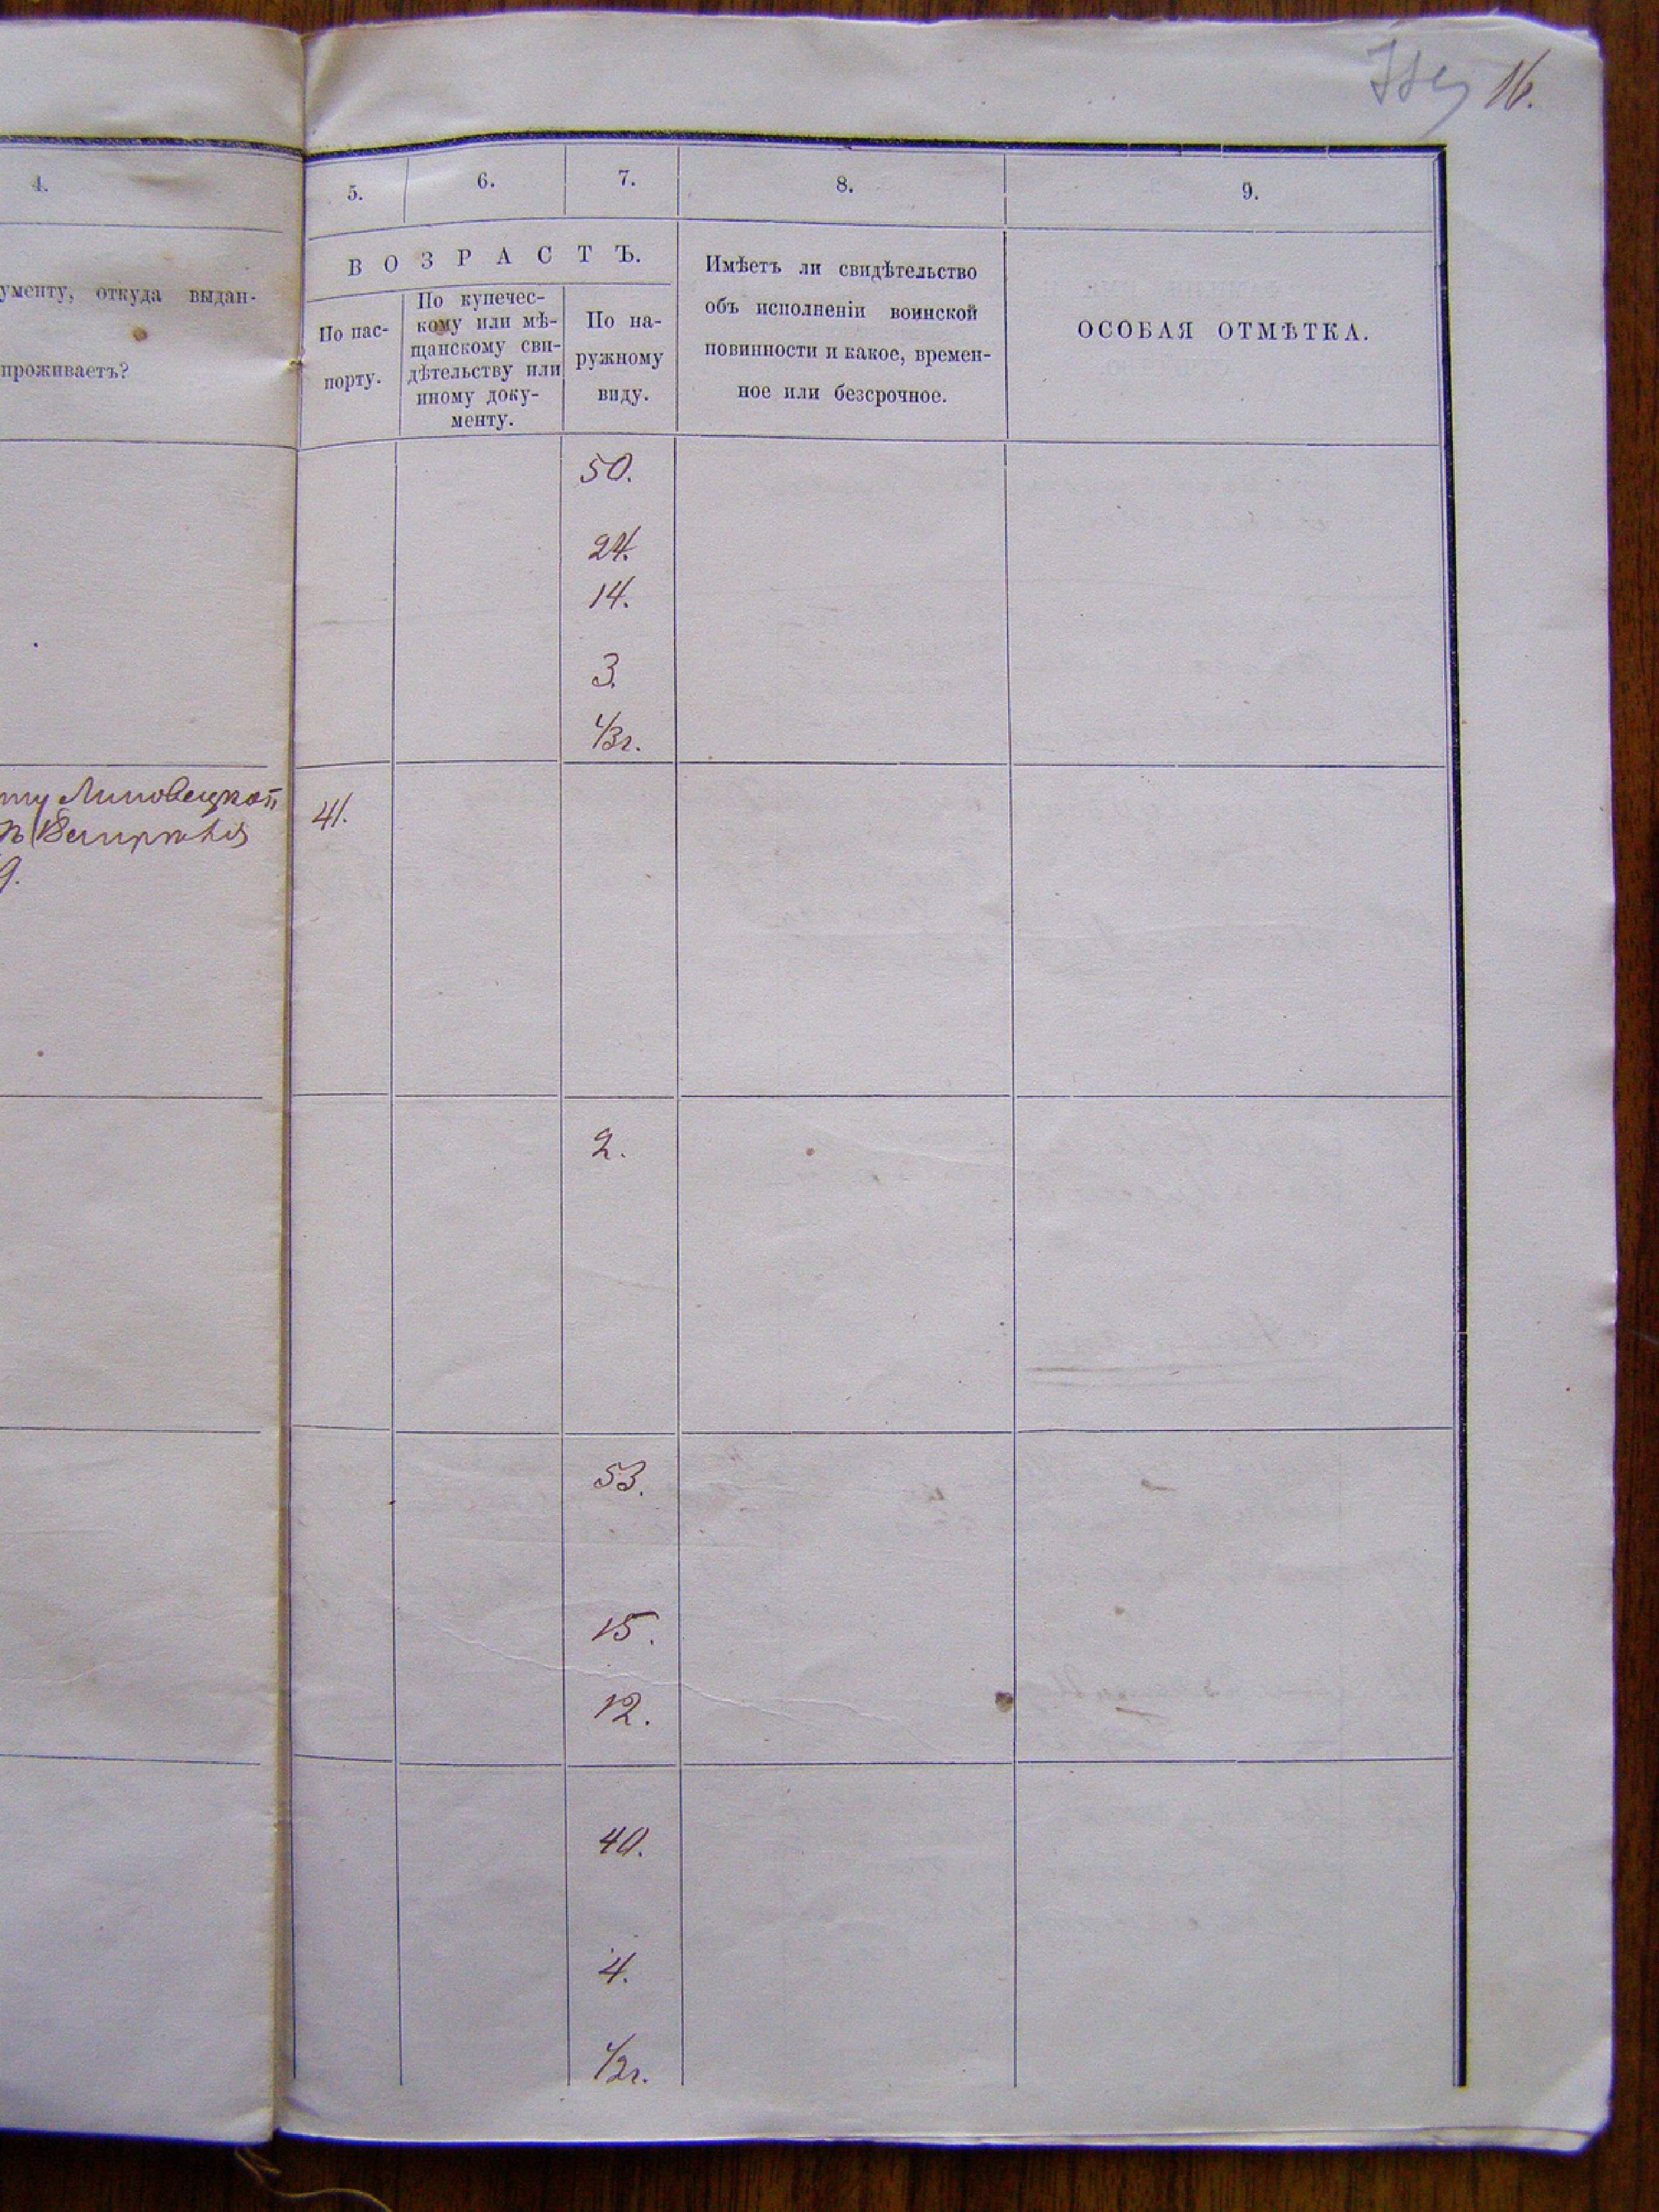 16.
4.
ументу, откуда выдан-
проживаетъ?
5.
6.
7.
8.
9.
ВОЗРАСТЪ.
По пас-
порту.
По купечес-
кому или мѣ-
щанскому сви-
дѣтельству или
иному доку-
менту.
По на-
ружному
виду.
Имѣетъ ли свидѣтельство
объ исполненіи воинской
повинности и какое, времен-
ное или безсрочное.
ОСОБАЯ ОТМѢТКА.
50.
24.
14.
3.
1/3 г.
41.
2.
53.
15.
12.
40.
4.
1/2 г.